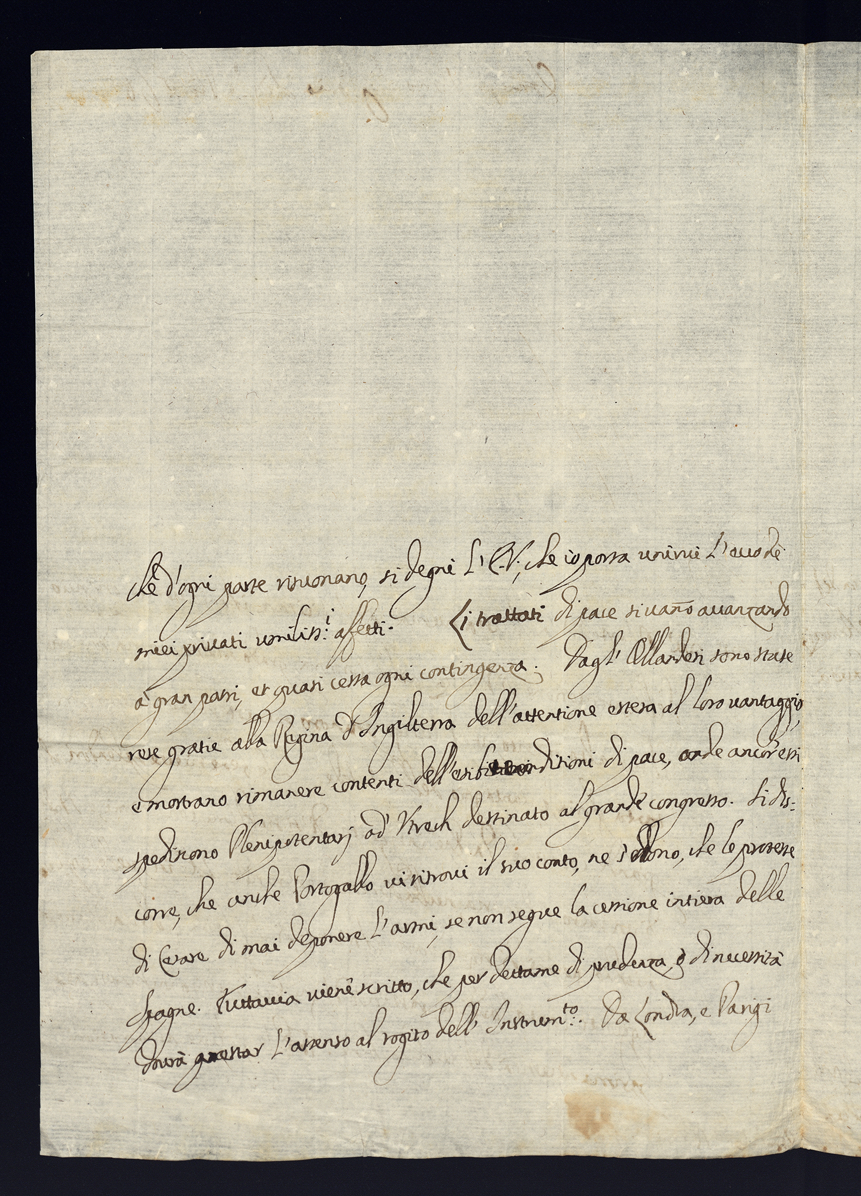 che d'ogni parte risuonano, si degni L'E.V., che io possa unirui L'auuo de
miei priuati umiliss.i affetti. Li trattati di pace si uano auanzando
à gran passi, et quasi cessa ogni contingenza. Dagl' Ollandesi sono state
rese gratie alla Regina d'Ingilterra dell'attentione estesa al loro uantaggio
e mostrano rimanere contenti dell'esibite condisioni di pace, onde ancor'essi
spediscono Plenipotentarj ad' Vtrech destinato al grande congresso. Si dis:
corre, che anche Portogallo ui ritroui il suo conto, ne s'odono, che le proteste
di Cesare di mai deponere L'armi, se non segue la cessione intiera delle
Spagne. Tuttauia uiene scritto, che per dettame di prudenza, ò di necessità
dourà prestar L'assenso al rogito dell' Instrum.to. Da Londra, e Parigi